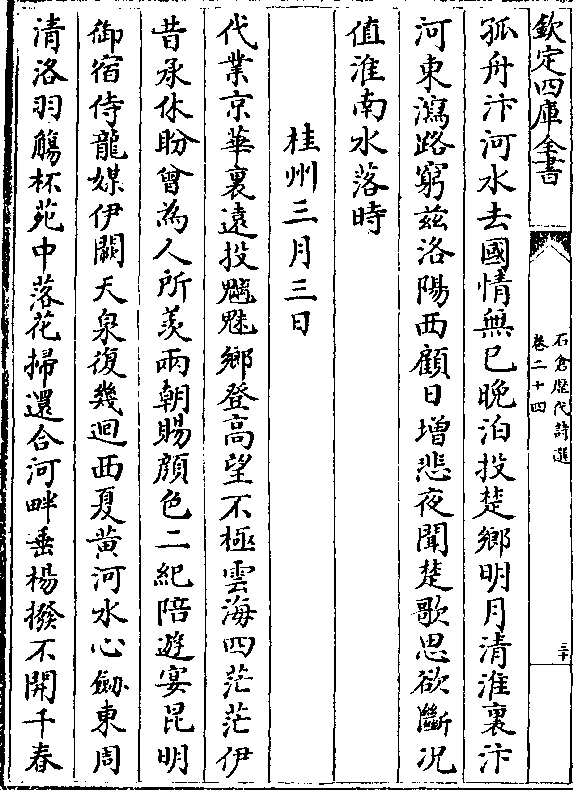 欽定四庫全書
石倉歴代詩選
卷二十四
三十
孤舟汴河水去國情無已晚泊投楚鄉明月清淮裏汴
河東瀉路窮兹洛陽西顧日增悲夜聞楚歌思欲斷况
值淮南水落時
桂州三月三日
代業京華裏遠投魑魅鄉登高望不極雲海四茫茫伊
昔承休盼曾為人所羨兩朝賜顔色二紀陪遊宴昆明
御宿侍龍媒伊闕天泉復幾迴西夏黄河水心劒東周
清洛羽觴杯苑中落花掃還合河畔垂楊撥不開千春